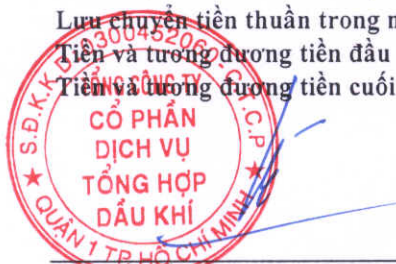 Lưu chuyển tiền thuần trong
Tiền và tương đương tiền đầu
Tiền và tương đương tiền cuối
S.Đ.K.K.D: 0300452060-C.T.C.P
TỔNG CÔNG TY
CỔ PHẦN
DỊCH VỤ
TỔNG HỢP
DẦU KHÍ
QUẬN 1 TP. HỒ CHÍ MINH